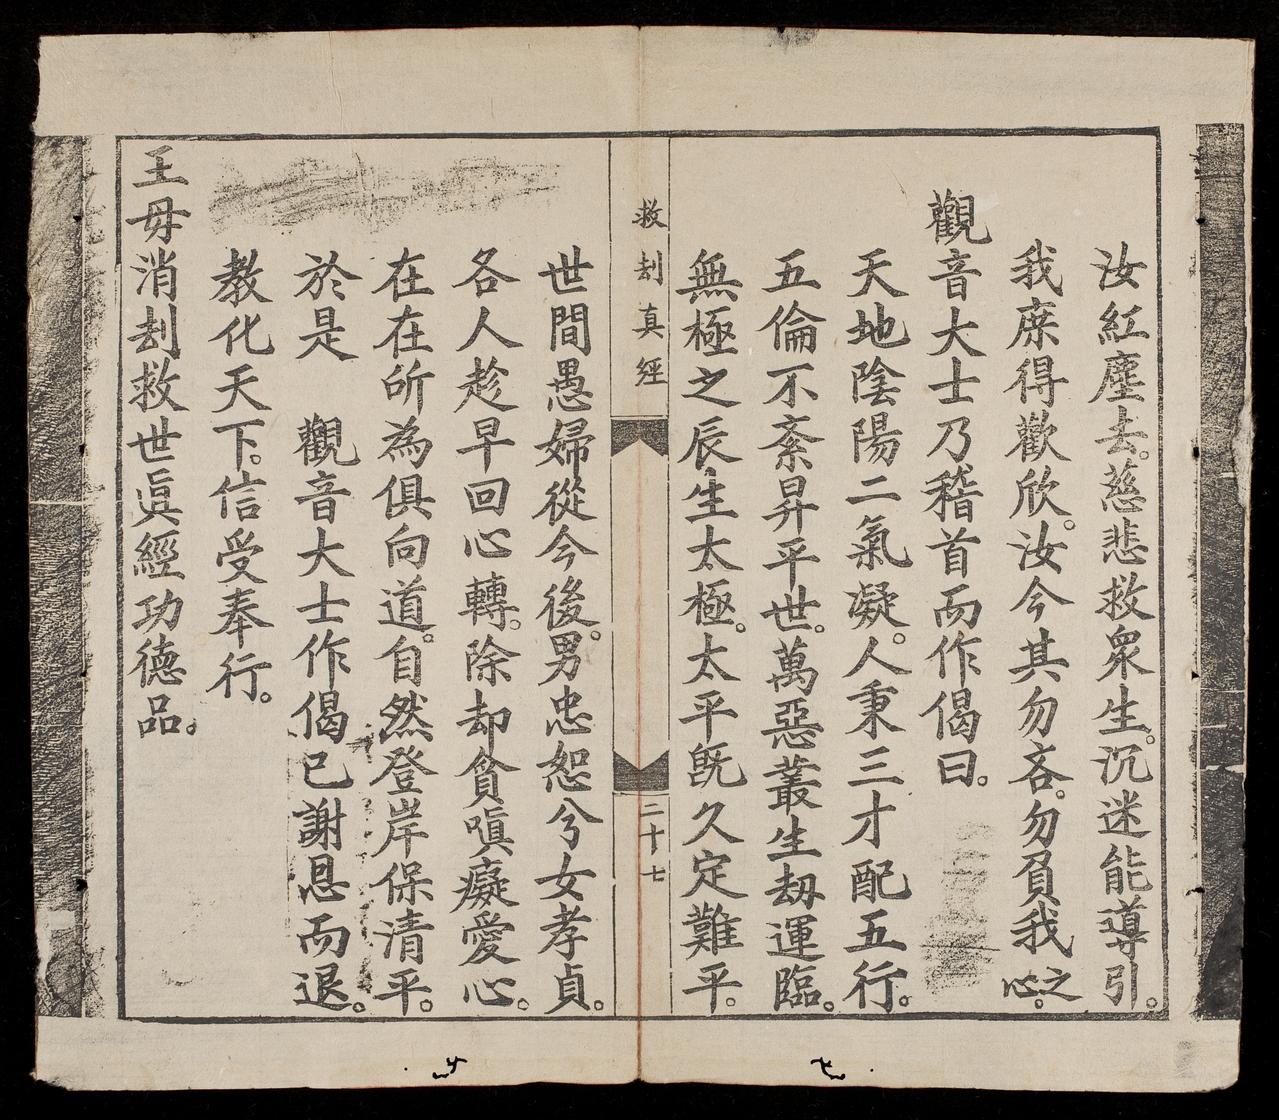 汝紅塵去。慈悲救衆生。沉迷能導引。
我庶得歡欣。汝今其勿吝。勿負我之心。
觀音大士乃稽首而作偈曰。
天地陰陽二氣凝。人秉三才配五行。
五倫不紊昇平世。萬惡叢生刼運臨。
無極之辰生太極。太平旣久定難平。
救刦真經
二十七
世間愚婦從今後。男忠恕兮女孝貞。
各人趁早回心轉。除却貪嗔癡愛心。
在在所為俱向道。自然登岸保清平。
於是　觀音大士作偈已謝恩而退。
教化天下。信受奉行。
王母消刦救世眞經功德品。